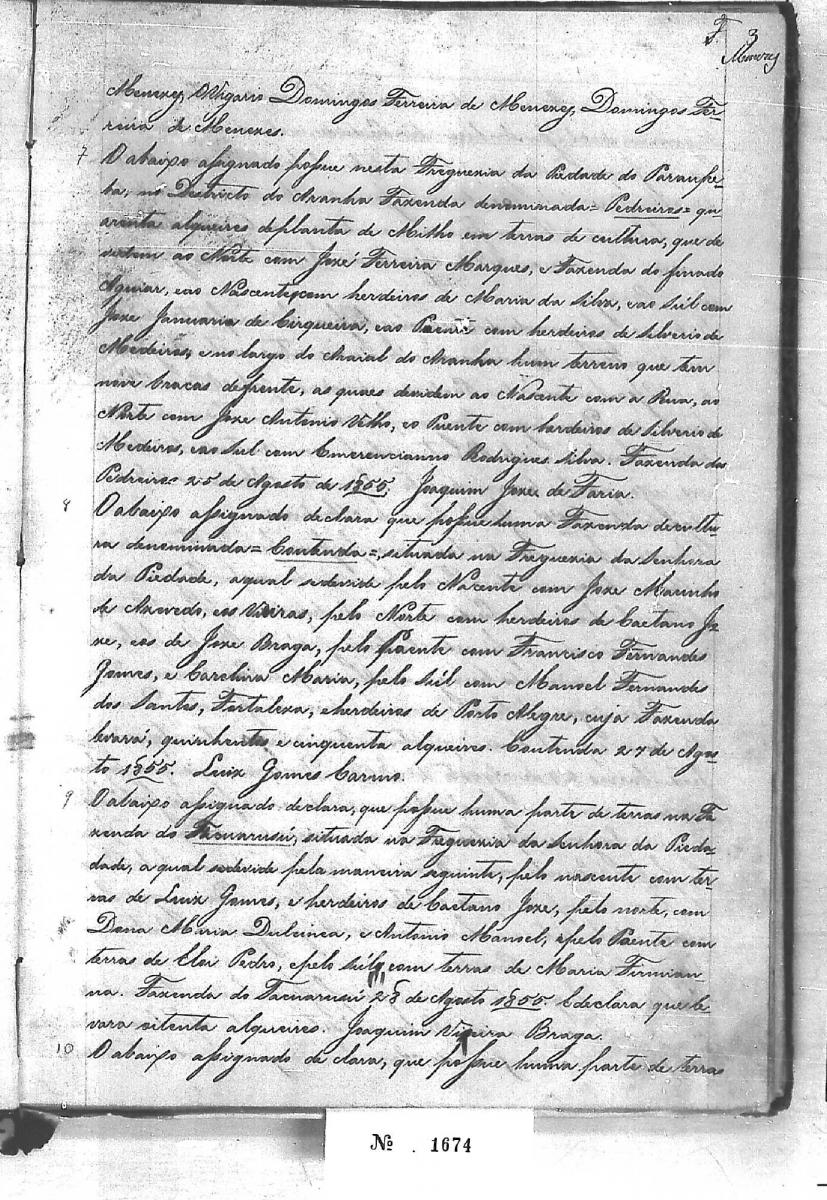 F 3
Menezes
Menezes, O Vigario Domingos Ferreira de Menezes, Domingos Fer-
reira de Menezes.
7 O abaixo assignado possue nesta Freguezia da Piedade do Paraupe-
ba, no Destricto do Aranha Fazenda denominada = Pedreiros = qu
arenta alqueires de planta de Milho em terras de cultura, que de
videm ao Norte com Jozé Ferreira Marques, e Fazenda do finado
Aguiar, e ao Nascente com herdeiros de Maria da Silva, e ao Sul com
Joze Januaria de Cirqueira, e ao Poente com herdeiros de Silverio de
Medeiros, e no largo do Araial do Aranha hum terreno que tem
nove bracas de frente, as quaes devidem ao Nascente com a Rua, ao
Norte com Joze Antonio Velho, e o Puente com hardeiros de Silverio de
Medeiros, e ao Sul com Emerencianno Rodrigues Silva. Fazenda dos
Pedreiros 25 de Agosto de 1855. Joaquim Joze de Faria.
8 O abaixo assignado declara que possue huma Fazenda de cultu-
ra denominada = Contenda =, situada na Freguezia da Senhora
da Piedade, a qual se devide pelo Nacente com Joze Marinho
de Azevedo, e os Vieiras, pelo Norte com herdeiros de Caetano Jo
ze, e os de Joze Braga, pelo Poente com Francisco Fernandes
Gomes, e Carolina Maria, pelo Sul com Manoel Fernandes
dos Santos, Fortaleza, e herdeiros de Porto Alegre, cuja Fazenda
levará, quinhentos e cinquenta alqueires. Contenda 27 de Agos-
to 1855. Luiz Gomes Carmo.
9 O abaixo assignado declara, que possue huma parte de terras na Fa
zenda do Tacuarusú, situada na Freguezia da Senhora da Pieda-
dade, a qual se devide pela maneira seguinte, pelo nascente com ter-
ras de Luiz Gomes, e herdeiros de Caetano Joze, pelo norte, com
Dona Maria Dulcinea, e Antonio Manoel, e pelo Poente com
terras de Eloi Pedro, e pelo Sul com terras de Maria Firmian
na. Fazenda do Tacuarusú 28 de Agosto 1855 E declara que le-
vara oitenta alqueires. Joaquim Vieira Braga.
10 O abaixo assignado de clara, que possue huma parte de terras
№ . 1674